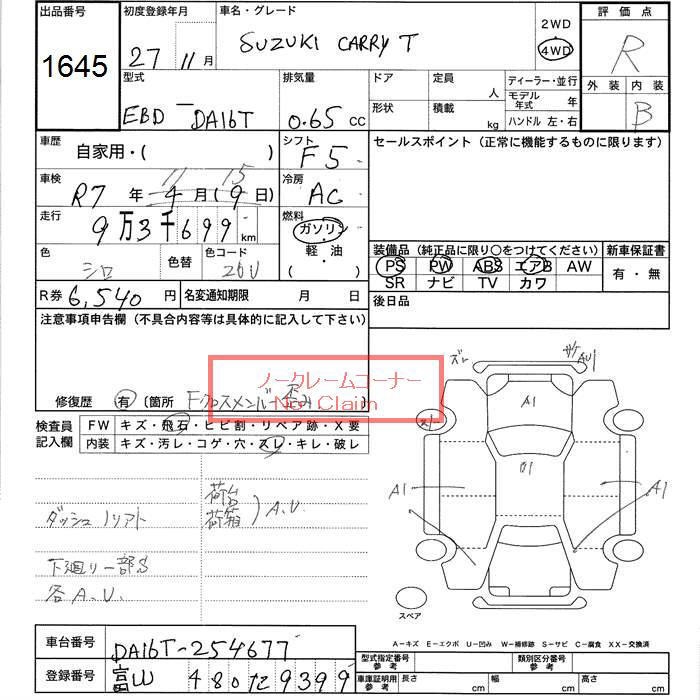 出品番号
1645
初度登録年月
27 11月
車名・グレード
SUZUKI CARRY T
2WD
4WD
評価点
R
外装 内装
B
型式
EBD-DA16T
排気量
0.65 cc
ドア
形状
定員
人
積載
kg
ディーラー・並行
モデル年式 年
ハンドル 左・右
車歴
自家用・( )
シフト
F5
セールスポイント(正常に機能するものに限ります)
車検
R7年 4月(9日)
11 15
冷房
AC
走行
9万3千699km
燃料
ガソリン
軽・油
( )
色
シロ
色替
色コード
26U
装備品(純正品に限り〇をつけてください)
新車保証書
PS PW ABS エアB AW
SR ナビ TV カワ
有・無
R券 6,540円
名変通知期限 月 日
後日品
注意事項申告欄(不具合内容等は具体的に記入して下さい)
ノークレームコーナー
No Claim
修復歴 有〔箇所 Fクロスメンバー
検査員記入欄
FW キズ・飛石・ヒビ割・リペア跡・X要
内装 キズ・汚レ・コゲ・穴・スレ・キレ・破レ
荷台
荷箱
A.U
ダッシュ ソリフト
下廻り一部S
各A.U.
ズレ
サケAU1
A1
スレ
G1
A1
A1
スペア
A-キズ E-エクボ U-凹み W-補修跡 S-サビ C-腐食 XX-交換済
車台番号
DA16T-254677
登録番号
富山 480 た 9399
型式指定番号 参考
類別区分番号 参考
車庫証明用 参考
長さ cm
幅 cm
高さ cm